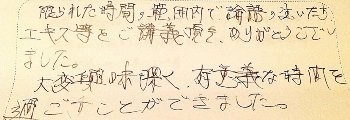 限られた時間の範囲内で論語の流いたき
エキス等をご講義頂き、ありがとうござい
ました。
大変興味深く、有意義な時間を
過ごすことができました。